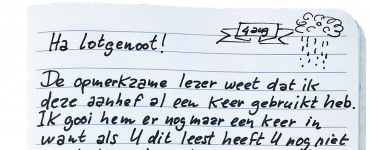 Ha lotgenoot!
De opmerkzame lezer weet dat ik
deze aanhef al een keer gebruikt heb.
IK gooi hem er nog maar een keer in
want als U dit leest heeft U nog niet